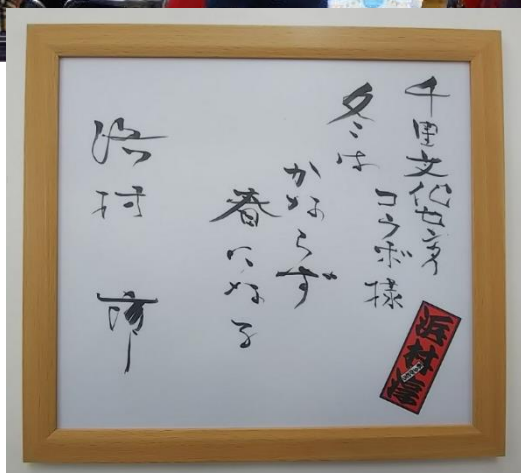 千里文化センター
コラボ様
冬は
かならず
春になる
浜村 淳
浜村淳